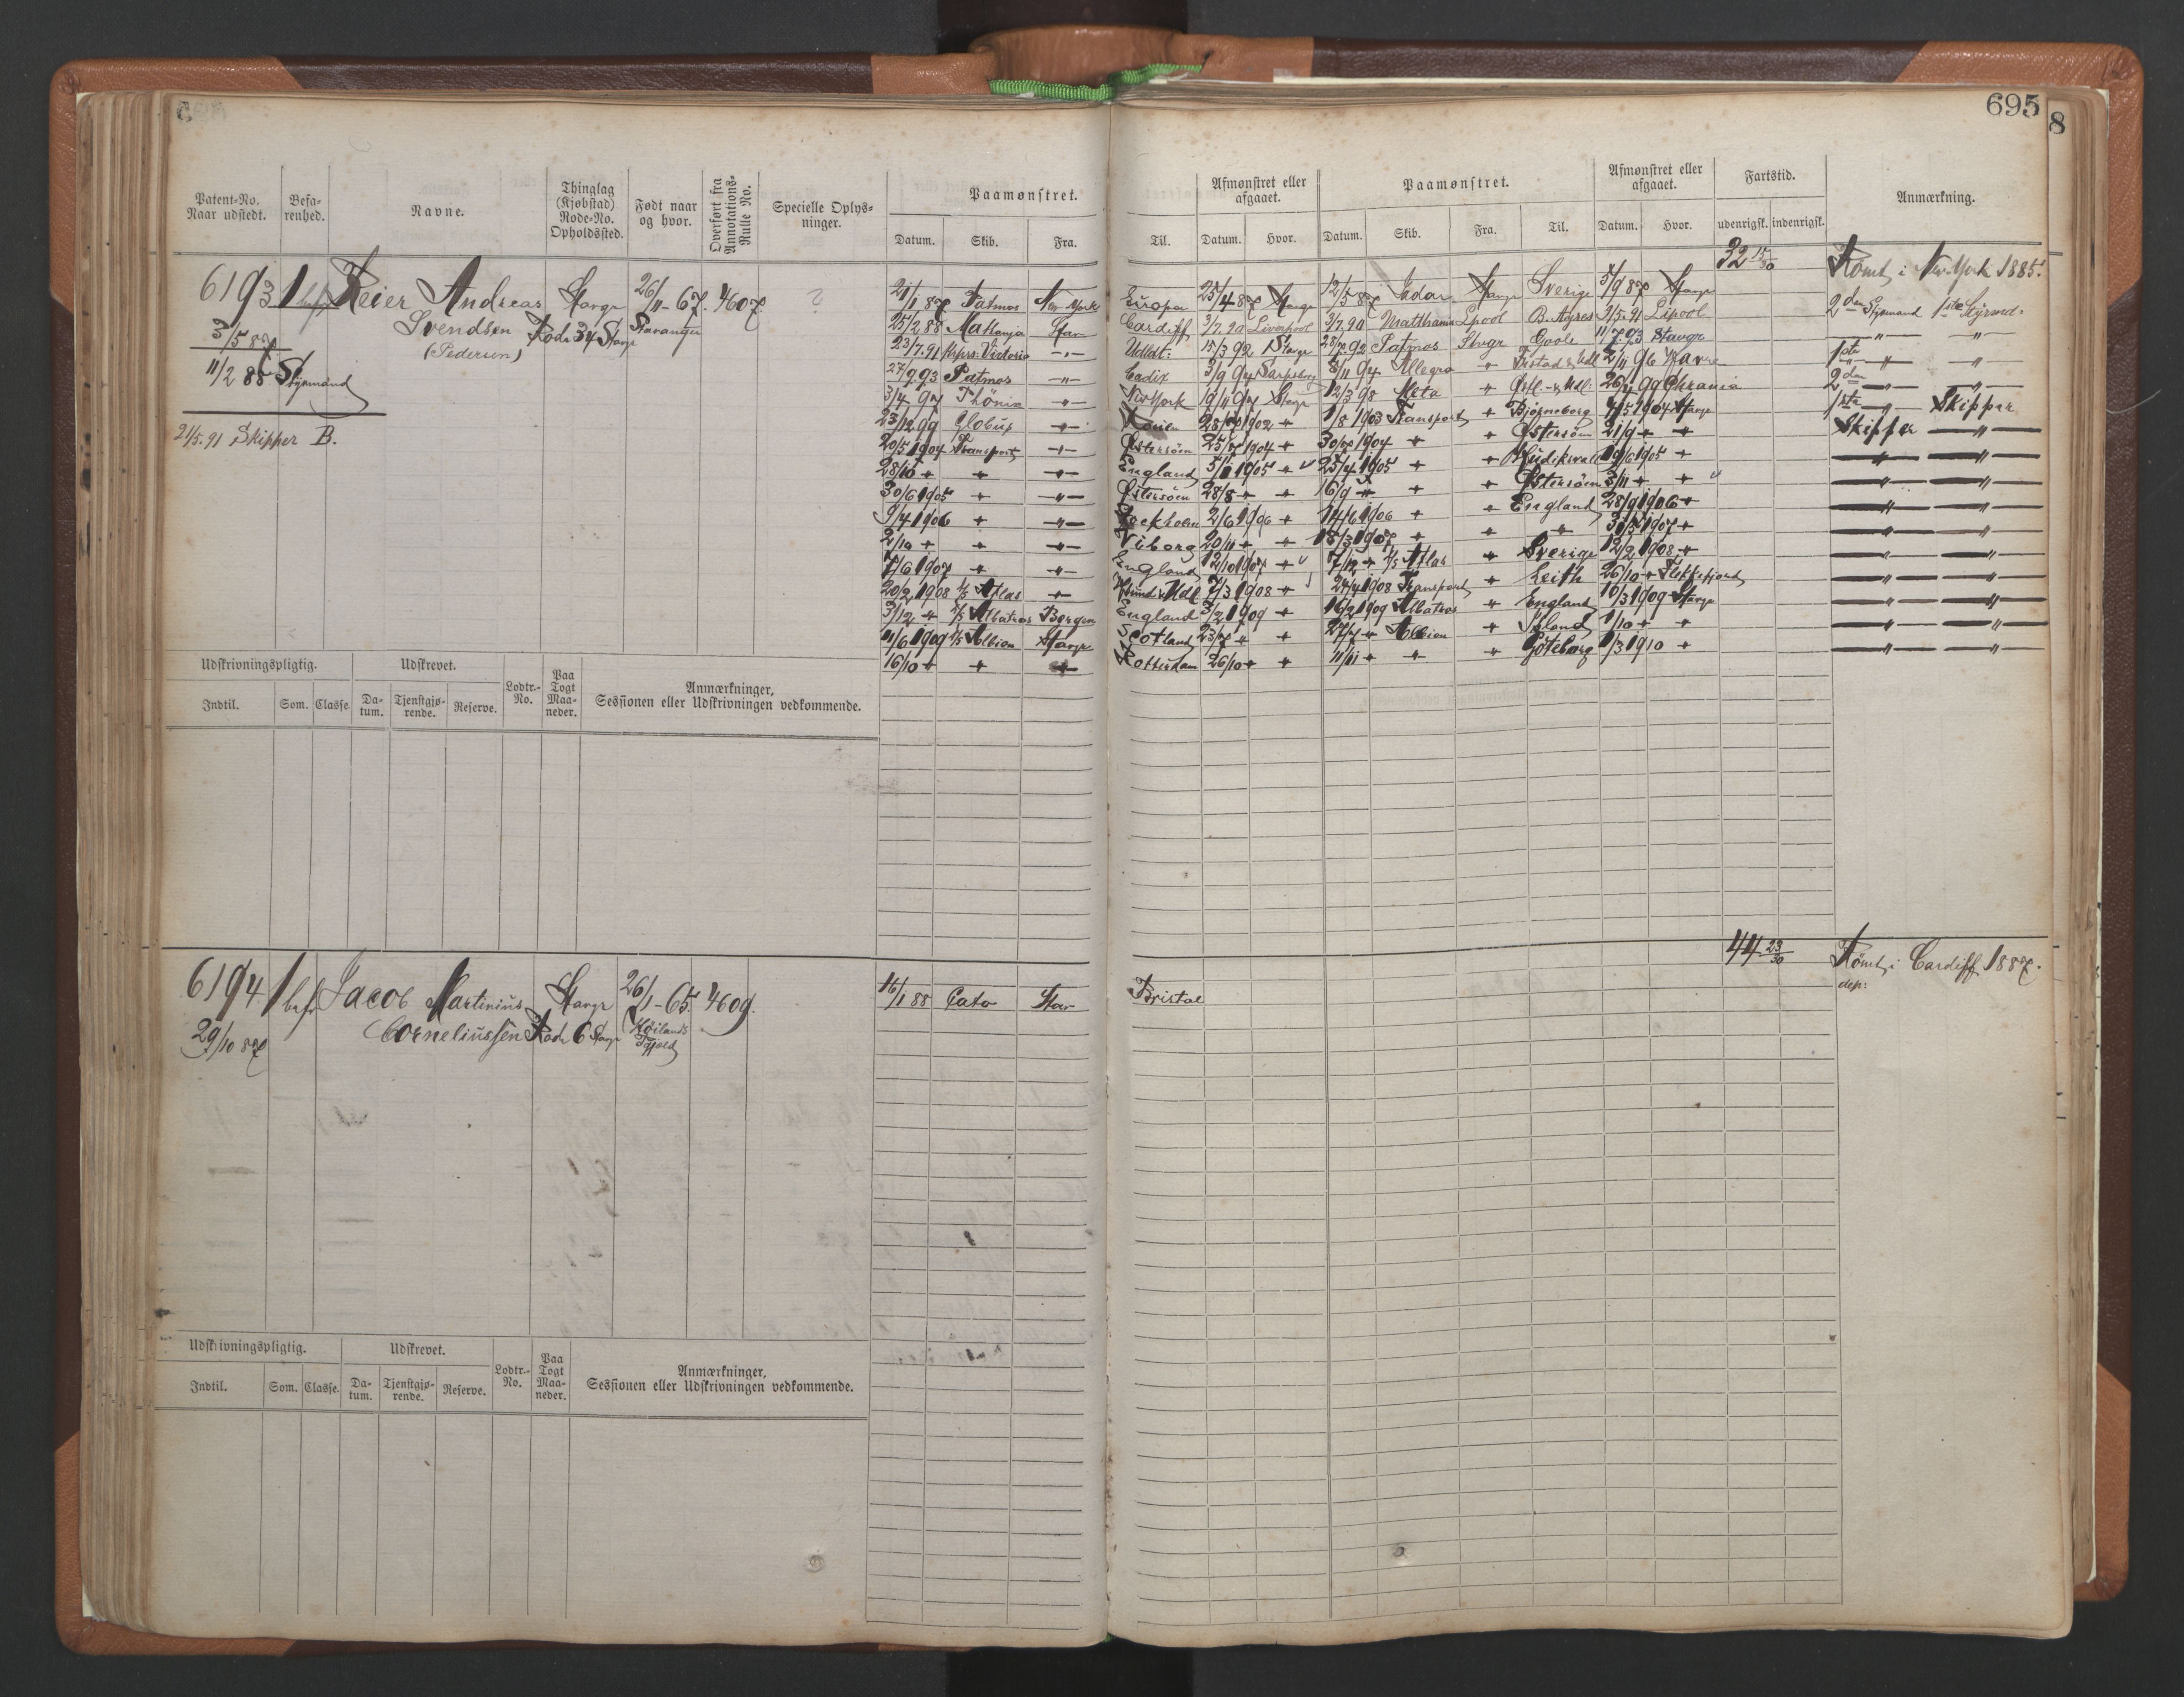 695
8
Patent-No. Naar udstedt.
Befa-renhed.
Navne.
Thinglag (Kjøbstad) Rode-No. Opholdssted.
Født naar og hvor.
Overført fra Annotations-Rulle No.
Specielle Oplys-ninger.
Paamønstret.
Datum. Skib. Fra.
Til.
Afmønstret eller afgaaet.
Datum. Hvor.
Paamønstret.
Datum. Skib. Fra. Til.
Afmønstret eller afgaaet.
Datum. Hvor.
Fartstid.
udenrigsk. indenrigsk.
Anmærkning.
6193 1 bef. Reier Andreas Stavgr 26/11-67. 4607. ?
Svendsen Rode 34 Stavgr Stavanger
(Pedersen)
3/5 87
11/2 88 Styrmand
21/5.91 Skipper B.
32 15/30
Rømt i New-York 1885.
21/1 87 Patmos New York Europa 25/4 87 Stavgr 12/5 87 Jadar Stavgr Sverige 5/9 87 Stavgr
25/2.88 Matanja Stav Cardiff 3/7.90 Liverpool 3/7.90 Matthania Lpool B. Ayres 2/5.91 Lipool 2den Styrmand 1ste Styrmd.
23/7.91 Victoria -"- Udldt: 15/3 92 Stavgr 28/7 92 Patmos Stvgr Goole 11/7.93 Stavgr -"- "
27/9 93 Patmos -"- Cadix 3/9 94 Sarpsborg 8/11 94 Allegro " 2/11 96 Havre 1ste " "
3/4 97 Fhönix -"- New York 19/11 97 Stavgr 12/3 98 Meta " Chrania 2den -"- -"-
23/12 99 Globus -"- 28/7 1902 " 1/8 1903 Transport " Bjørneborg 4/5 1904 Stavgr 1ste -"- Skipper
20/5 1904 Transport -"- Østersøen 25/7 1904 " 30/7 1904 " " Østersøen 21/9 " " Skipper -"-
28/10 " " -"- England 5/1 1905 " 25/4 1905 " " Hudikswald 19/6 1905 " -"- -"-
30/6 1905 " -"- Østersøen 28/8 " " 16/9 " " " Østersøen 3/11 " " -"- -"-
9/4 1906 " -"- Stockholm 2/6 1906 " 14/6 1906 " " England 28/9 1906 " -"- -"-
2/10 " " -"- Viborg 20/11 " " 18/3 1907 " " " 31/5 1907 " -"- -"-
7/6 1907 " -"- England 12/10 1907 " 7/12 " D/S Atlas " Sverige 12/2 1908 " -"- -"-
20/2 1908 D/S Atlas " 7/3 1908 " 24/4 1908 Transport " Leith 26/10 " Flekkefjord -"- -"-
3/12 " D/S Albatros Bergen England 3/2 1909 " 16/2 1909 Albatros " England 10/3 1909 Stavgr -"- -"-
11/6 1909 D/S Albion Stavgr Scotland 23/7 " " 27/7 " Albion " Island 1/10 " " -"- -"-
16/10 " " " Rotterdam 26/10 " " 11/11 " " " Göteborg 1/3 1910 " -"- -"-
Udskrivningspligtig.
Indtil. Som. Classe.
Udskrevet.
Da-tum. Tjenstgjø-rende. Reserve.
Lodtr.-No.
Paa Togt Maa-neder.
Anmærkninger, Sessionen eller Udskrivningen vedkommende.
6194 1 bef. Jacob Martinius Stavgr 26/1-65. 4609.
29/10 87 Corneliussen Rode 6 Stavgr Høilands Pgjeld
16/1 88 Cato Stav Bristol
44 23/30
Rømt i Cardiff 1887.
dep:
Udskrivningspligtig.
Indtil. Som. Classe.
Udskrevet.
Da-tum. Tjenstgjø-rende. Reserve.
Lodtr.-No.
Paa Togt Maa-neder.
Anmærkninger, Sessionen eller Udskrivningen vedkommende.